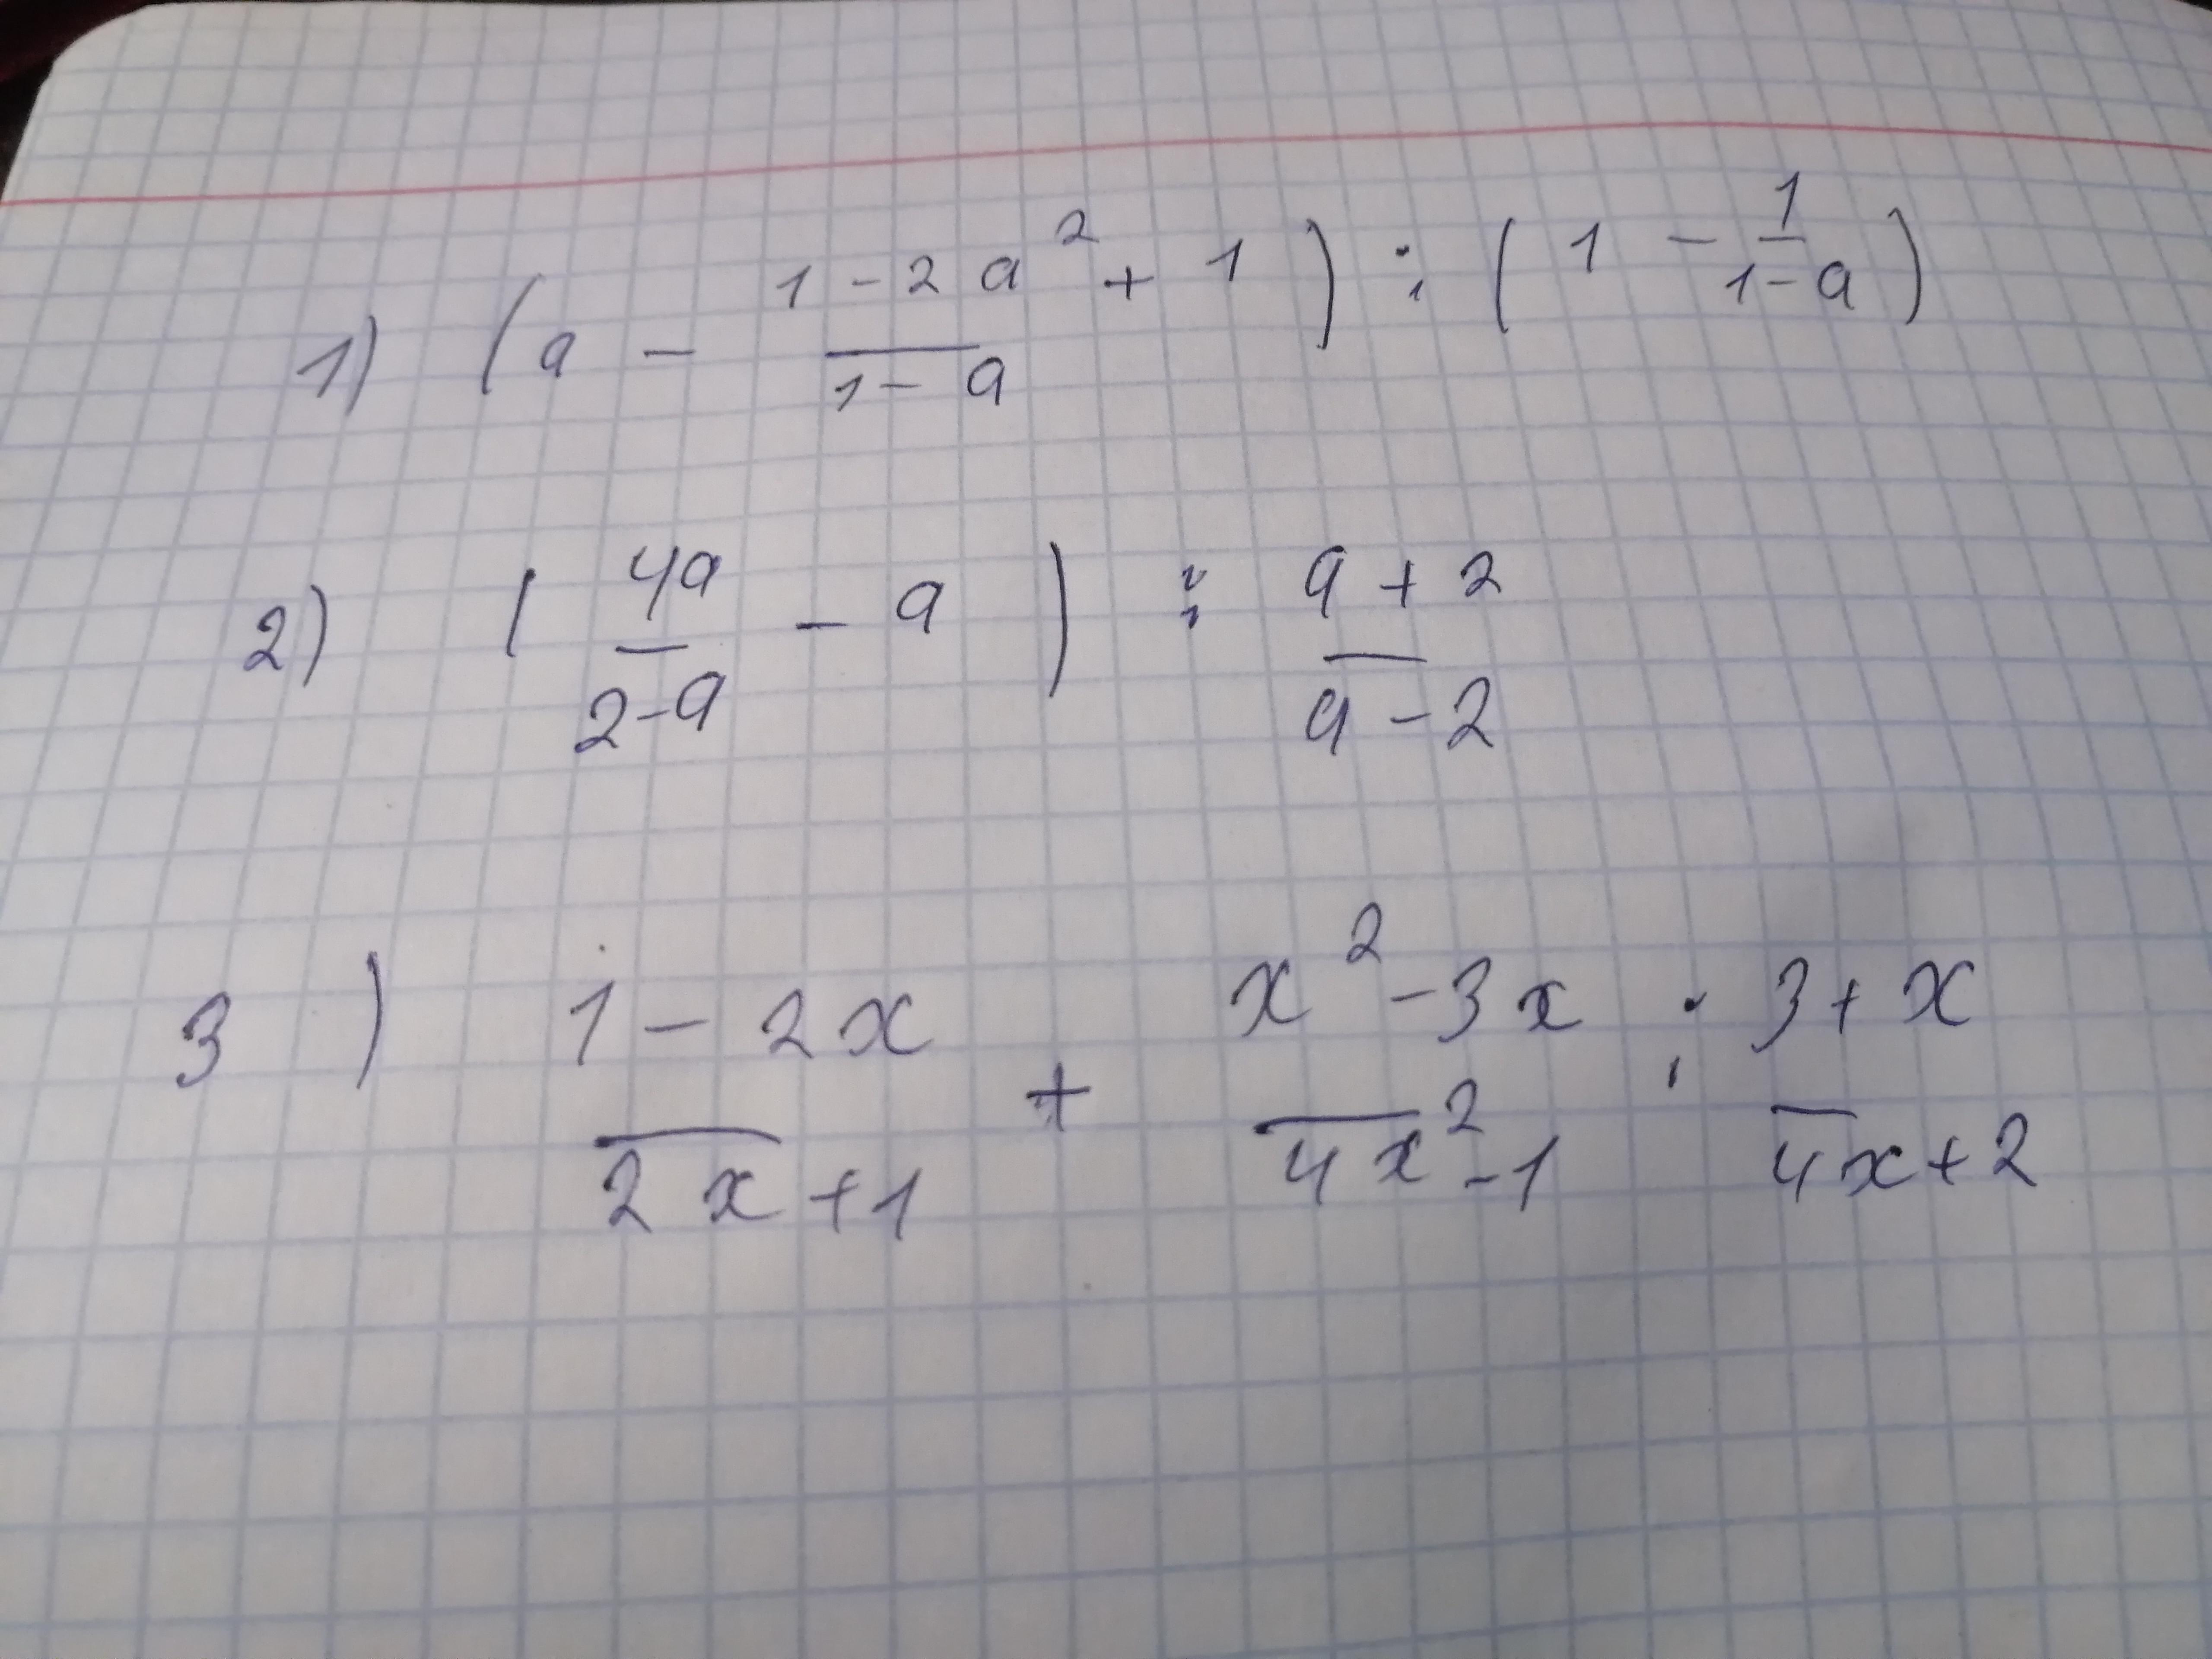 1) (a - \frac{1 - 2a^2}{1 - a} + 1) : (1 - \frac{1}{1 - a})
2) (\frac{4a}{2 - a} - a) : \frac{a + 2}{a - 2}
3) \frac{1 - 2x}{2x + 1} + \frac{x^2 - 3x}{4x^2 - 1} : \frac{3 + x}{4x + 2}